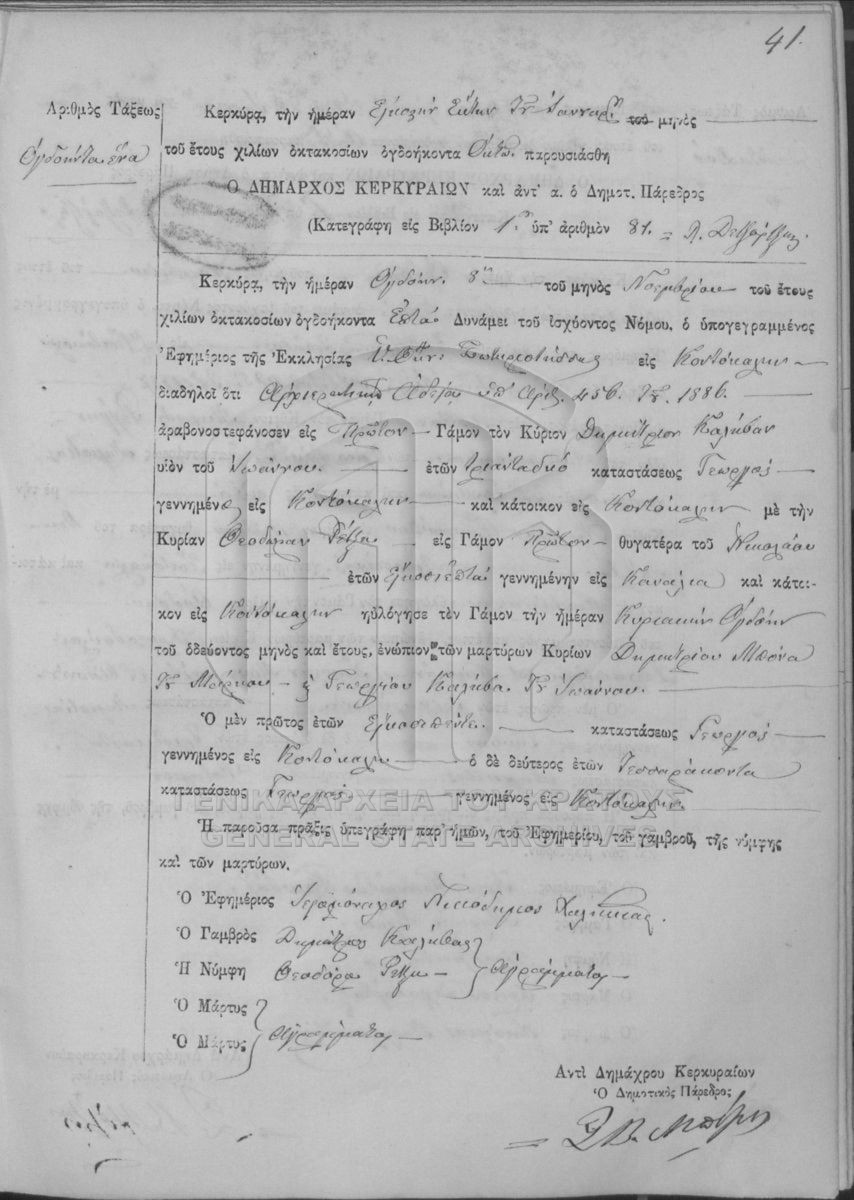 41.
Ἀριθμὸς Τάξεως
Ὀγδοήντα ἕνα
Κερκύρᾳ, τὴν ἡμέραν Εἰκοστὴν Ἕκτην τοῦ μηνὸς
τοῦ ἔτους χιλίων ὀκτακοσίων ὀγδοήκοντα Ὀκτὼ παρουσιάσθη
Ο ΔΗΜΑΡΧΟΣ ΚΕΡΚΥΡΑΙΩΝ καὶ ἀντ' α. ὁ Δημοτ. Πάρεδρος
(Κατεγράφη εἰς Βιβλίον 1ον ὑπ' ἀριθμὸν 81.
Κερκύρᾳ, τὴν ἡμέραν Ὀγδόην 8ην τοῦ μηνὸς Νοεμβρίου τοῦ ἔτους
χιλίων ὀκτακοσίων ὀγδοήκοντα Ἑπτὰ Δυνάμει τοῦ ἰσχύοντος Νόμου, ὁ ὑπογεγραμμένος
Ἐφημέριος τῆς Ἐκκλησίας εἰς Κοντόκαλην
διαδηλοῖ ὅτι Ἀρχιερατικῇ Ἀδείᾳ ὑπ' Ἀριθ. 456. 1886.
ἀραβονοστεφάνοσεν εἰς Πρῶτον Γάμον τὸν Κύριον Δημήτριον Καλήβαν
υἱὸν τοῦ Ἰωάννου ἐτῶν τριανταδύο καταστάσεως Γεωργός
γεννημένο εἰς Κοντόκαλην καὶ κάτοικον εἰς Κοντόκαλην μὲ τὴν
Κυρίαν Θεοδώραν Ρέγγη εἰς Γάμον Πρῶτον θυγατέρα τοῦ Νικολάου
ἐτῶν Εἰκοσιεπτά γεννημένην εἰς Κανάλια καὶ κάτοι-
κον εἰς Κοντόκαλην ηὐλόγησε τὸν Γάμον τὴν ἡμέραν Κυριακὴν Ὀγδόην
τοῦ ὁδεύοντος μηνὸς καὶ ἔτους, ἐνώπιον τῶν μαρτύρων Κυρίων Δημητρίου Μπόνα
Γεωργίου Καλήβα Ἰωάννου.
Ὁ μὲν πρῶτος ἐτῶν Εἰκοσιπέντε καταστάσεως Γεωργός
γεννημένος εἰς Κοντόκαλη ὁ δὲ δεύτερος ἐτῶν Τεσσαράκοντα
καταστάσεως Γεωργός γεννημένος εἰς Κοντόκαλην.
ΓΕΝΙΚΑ ΑΡΧΕΙΑ ΤΟΥ ΚΡΑΤΟΥΣ
GENERAL STATE ARCHIVES
Ἡ παροῦσα πρᾶξις ὑπεγράφη παρ' ἡμῶν, τοῦ Ἐφημερίου, τοῦ γαμβροῦ, τῆς νύμφης
καὶ τῶν μαρτύρων.
Ὁ Ἐφημέριος Ἱερομόναχος Νικόδημος
Ὁ Γαμβρὸς Δημήτριος Καλήβας
Ἡ Νύμφη Θεοδώρα Ρέγγη Ἀγράμματοι
Ὁ Μάρτυς
Ὁ Μάρτυς Ἀγράμματοι
Ἀντὶ Δημάρχου Κερκυραίων
Ὁ Δημοτικὸς Πάρεδρος